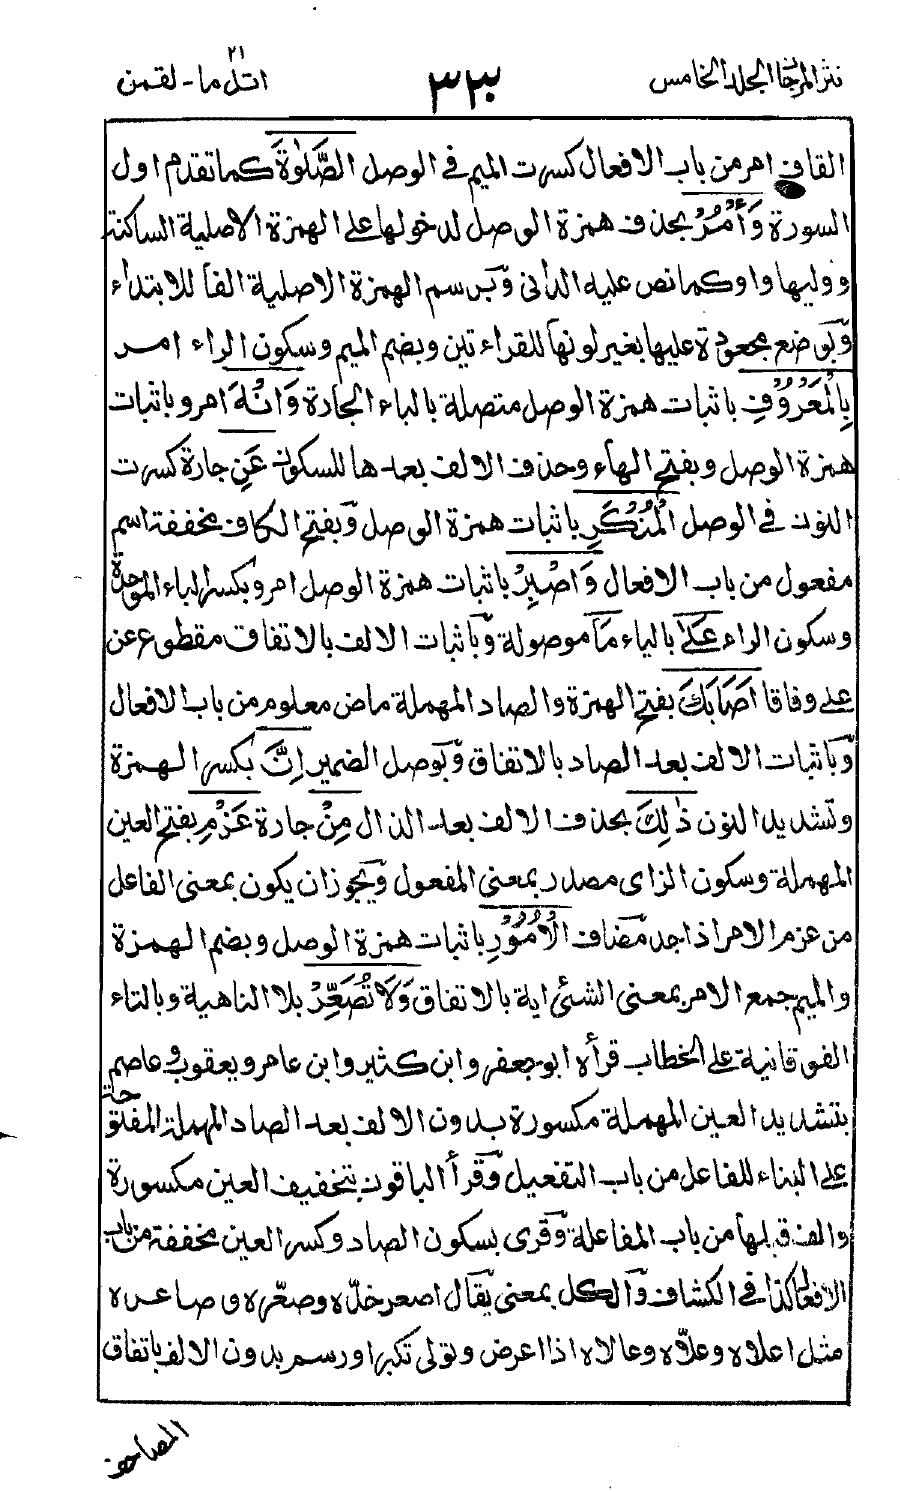 نثر المرجان الجلد الخامس ٣٣٠ اتل ما - لقمن ٢١
القاف امر من باب الافعال كسرت الميم في الوصل الصَّلٰوةَ كما تقدم اول
السورة وَأْمُرْ بحذف همزة الوصل لدخولها على الهمزة الاصلية الساكنة
ووليها واو كما نص عليه الداني وترسم الهمزة الاصلية الفا للابتداء
وتوضع مجعودة عليها بغير لونها للقراءتين وبضم الميم وسكون الراء امر
بِالْمَعْرُوْفِ باثبات همزة الوصل متصلة بالباء الجارة وَانْهَ امر وباثبات
همزة الوصل وبفتح الهاء وحذف الالف بعدها للسكون عَنِ جارة كسرت
النون في الوصل الْمُنْكَرِ باثبات همزة الوصل وبفتح الكاف مخففة اسم
مفعول من باب الافعال وَاصْبِرْ باثبات همزة الوصل امر وبكسر الباء الموحدة
وسكون الراء عَلٰى بالياء مَا موصولة وباثبات الالف بالاتفاق مقطوع عن
على وفاقا اَصَابَكَ بفتح الهمزة والصاد المهملة ماض معلوم من باب الافعال
وباثبات الالف بعد الصاد بالاتفاق وبوصل الضمير اِنَّ بكسر الهمزة
وتشديد النون ذٰلِكَ بحذف الالف بعد الذال مِنْ جارة عَزْمِ بفتح العين
المهملة وسكون الزاى مصدر بمعنى المفعول ويجوز ان يكون بمعنى الفاعل
من عزم الامر اذا جد مضاف الْاُمُوْرِ باثبات همزة الوصل وبضم الهمزة
والميم جمع الامر بمعنى الشئ اية بالاتفاق وَلَا تُصَعِّرْ بلا الناهية وبالتاء
الفوقانية على الخطاب قرأه ابو جعفر وابن كثير وابن عامر ويعقوب وعاصم
بتشديد العين المهملة مكسورة بدون الالف بعد الصاد المهملة المفتوحة
على البناء للفاعل من باب التفعيل وقرأ الباقون بتخفيف العين مكسورة
والف قبلها من باب المفاعلة وقرى بسكون الصاد وكسر العين مخففة من باب
الافعال كذا في الكشاف والكل بمعنى يقال اصعر خدّه وصعّره وصاعره
مثل اعلاه وعلّاه وعالاه اذا اعرض وتولى تكبرا ورسم بدون الالف باتفاق
المصاحف